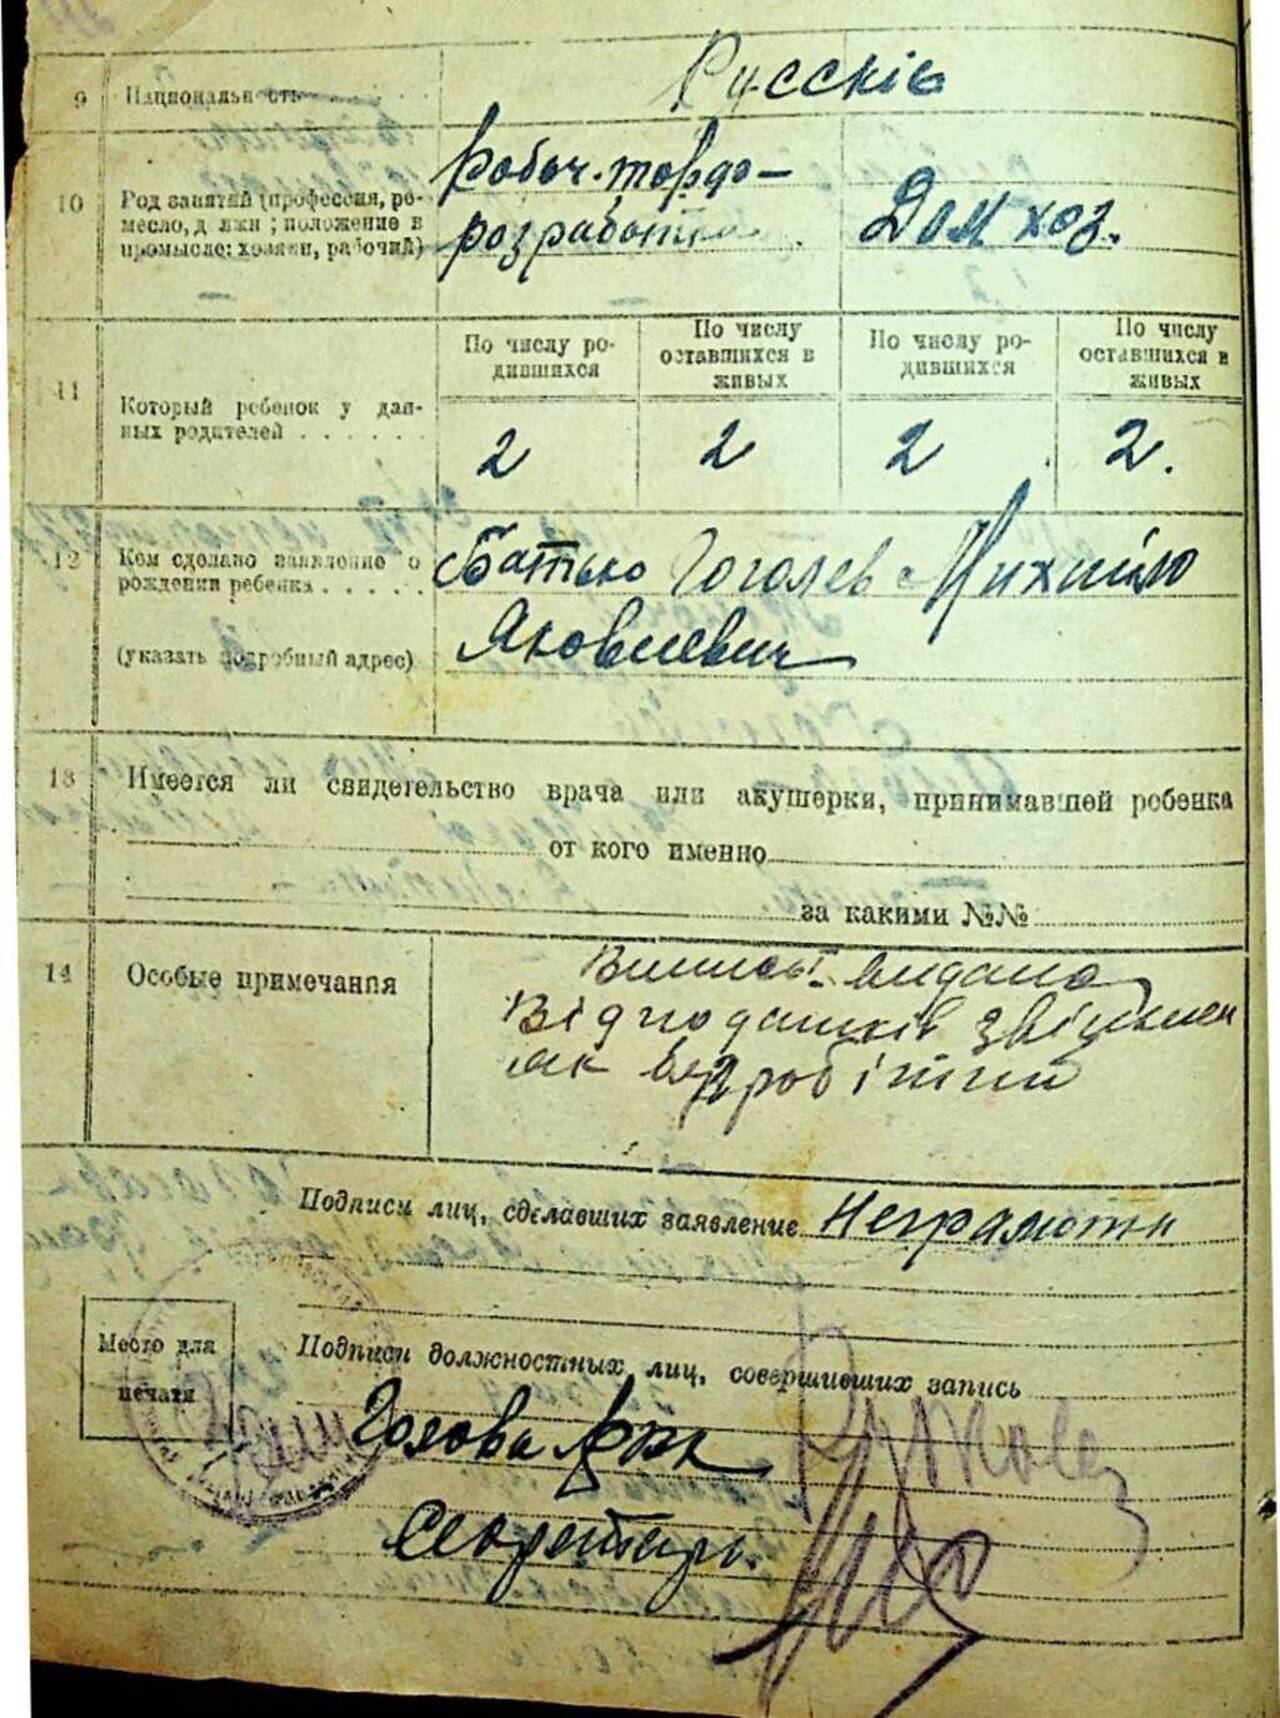 9 Национальность Русскіе
10 Род занятий (профессия, ре-
месло, д лжн ; положение в
промысле: хозяин, рабочий)
Робоч. торфо-
розработки
Дом хоз.
11 Который ребенок у дан-
ных родителей . . . . . .
По числу ро-
дившихся
По числу
оставшихся в
живых
По числу ро-
дившихся
По числу
оставшихся в
живых
2 2 2 2.
12 Кем сделано заявление о
рождении ребенка . . . . .
(указать подробный адрес)
Батько Гоголев Михайло
Яковлевич
13 Имеется ли свидетельство врача или акушерки, принимавшей ребенка
от кого именно
за какими №№
14 Особые примечания
Виписі видано
Від податків звільнен
як
Подписи лиц, сделавших заявление Неграмотн
Место для
печати
Подписи должностных лиц, совершивших запись
Голова
Секретарь.